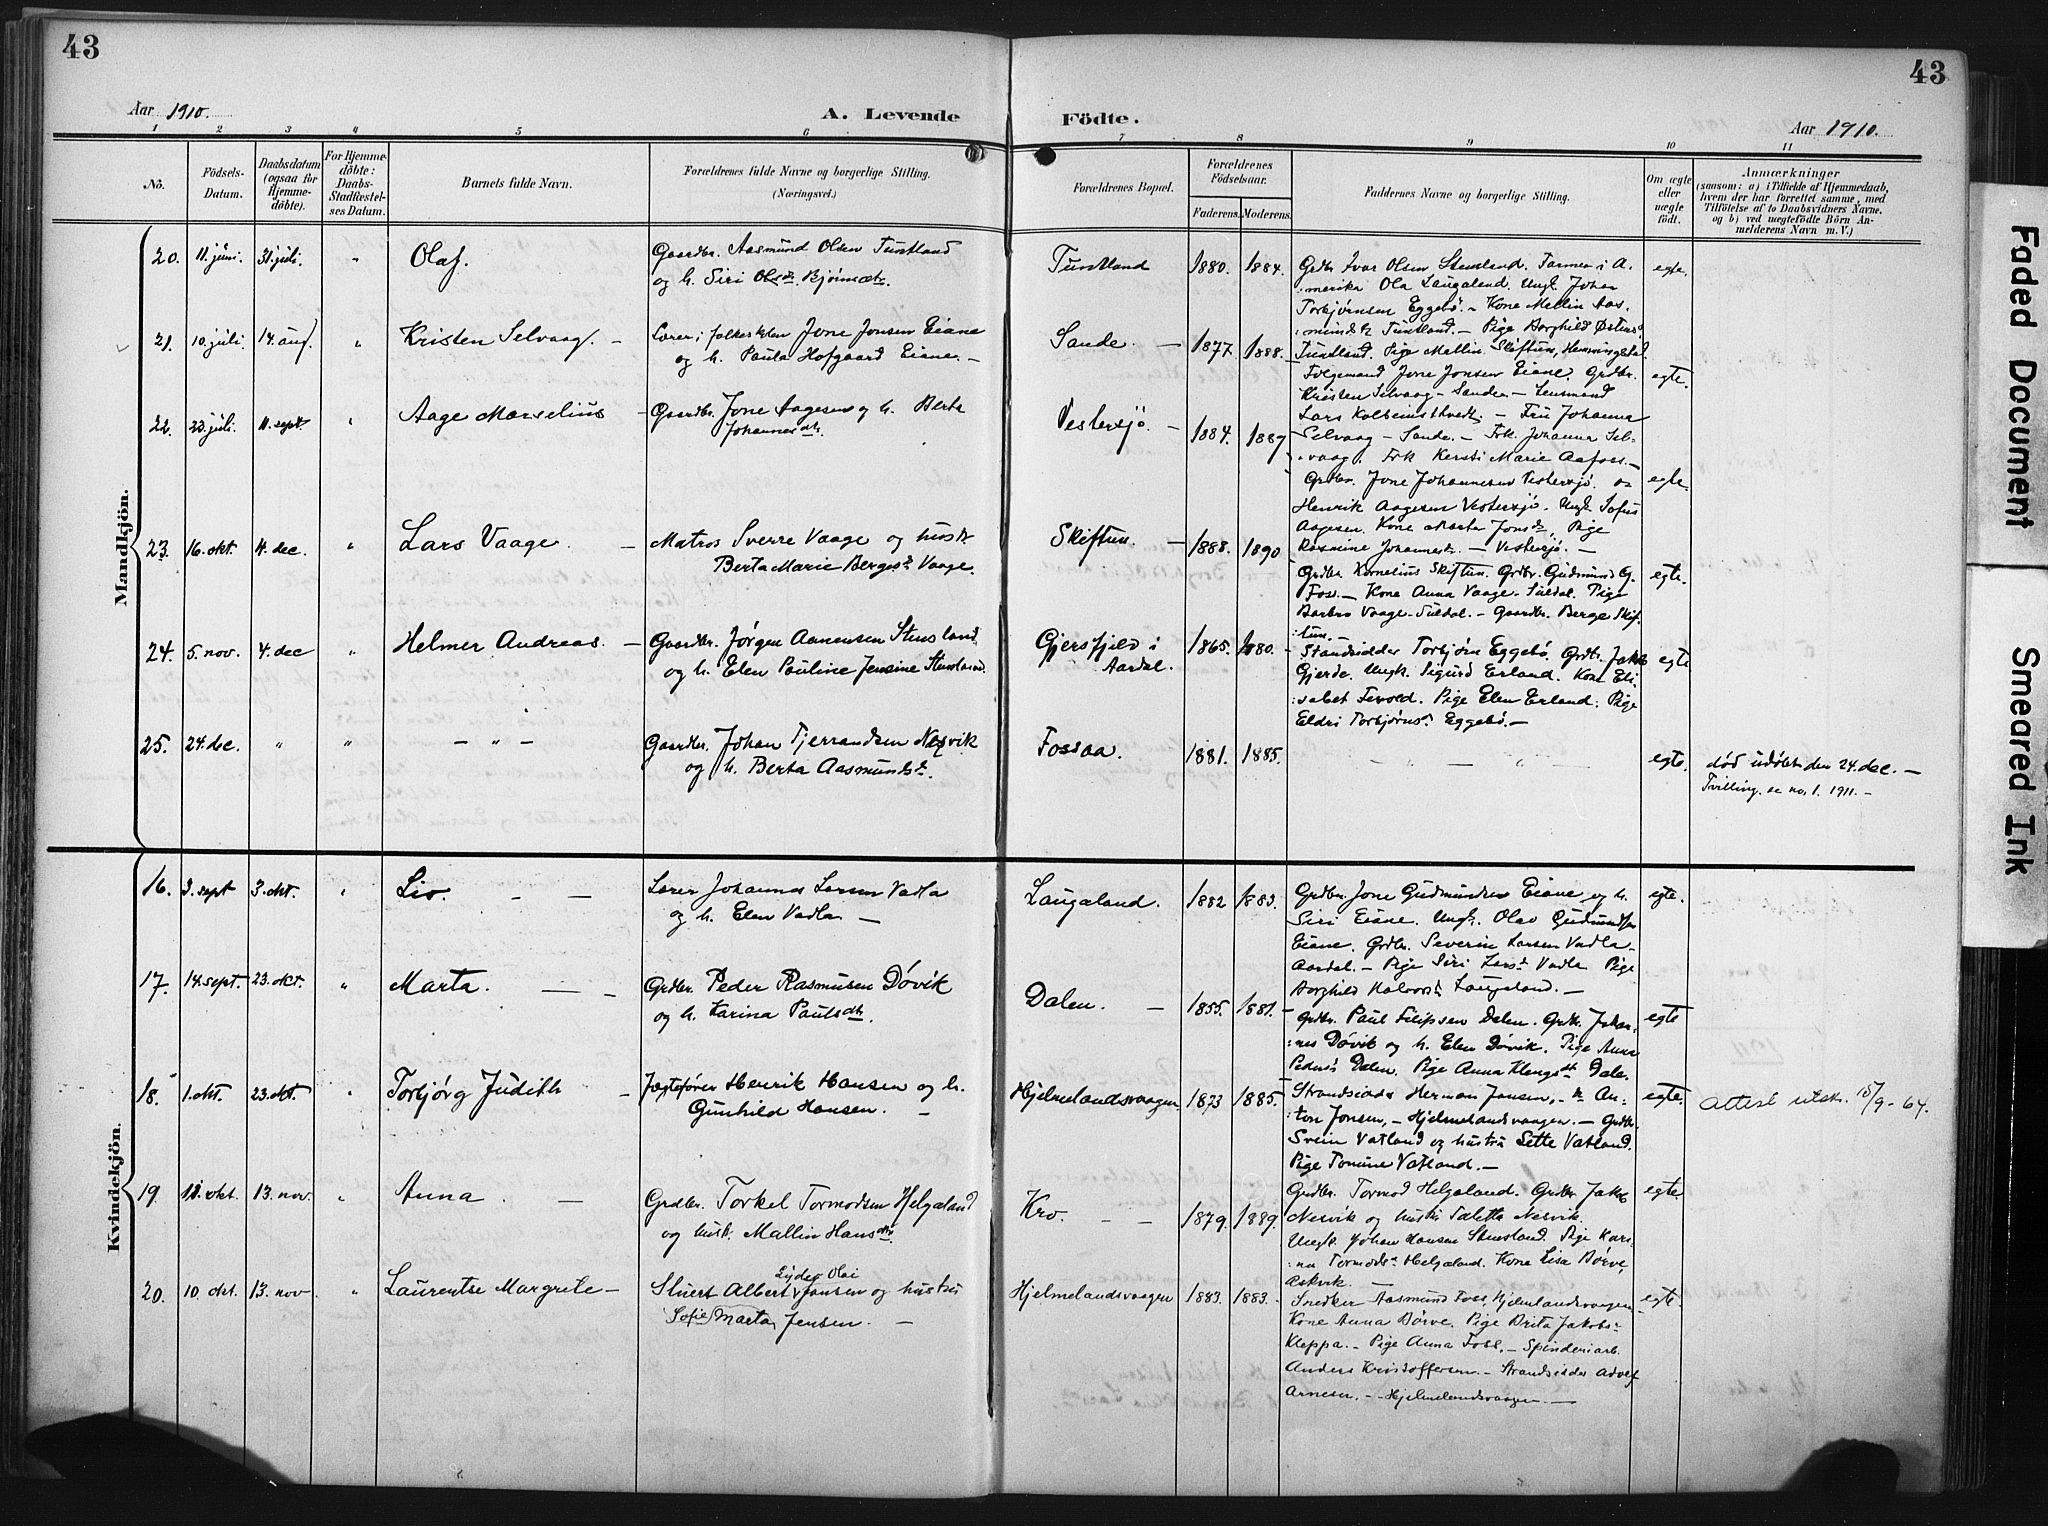 43
43
Aar 1910.
A. Levende
Födte.
Aar 1910.
1 2 3 4 5 6 7 8 9 10 11
No.
Födsels-
Datum.
Daabsdatum
(ogsaa for
Hjemme-
døbte).
For Hjemme-
døbte:
Daabs-
Stadfæstel-
ses Datum.
Barnets fulde Navn.
Forældrenes fulde Navne og borgerlige Stilling.
(Næringsvei.)
Forældrenes Bopæl.
Forældrenes
Födselsaar.
Faderens.
Moderens.
Faddernes Navne og borgerlige Stilling.
Om ægte
eller
uægte
födt.
Anmærkninger
(saasom: a) i Tilfælde af Hjemmedaab,
hvem der har forrettet samme, med
Tilföielse af to Daabsvidners Navne,
og b) ved uægtefödte Börn An-
melderens Navn m. V.)
Mandkjön.
20. 11. juni. 31. juli. " Olaf.
Gaardbr. Aasmund Olsen Tuntland
og h. Siri Olsdtr. Bjørnsæth.
Tuntland 1880. 1884.
Grdbr. Ivar Olsen Stensland. Farmer i A-
merika Ola Laugaland. Ungk. Johan
Torbjørnsen Eggebø. - Kone Mallin Aas-
mundsdtr. Tuntland. - Pige Borghild Østens
Tuntland. Pige Mallin Skiftun, Hemmingstad
egte.
21. 10. juli. 14. aug. " Kristen Selvaag. -
Lærer i folkeskolen Jone Jonsen Eiane
og h. Paula Hofgaard Eiane. -
Sande. - 1877. 1888.
Folgemand Jone Jonsen Eiane. Grdbr.
Kristen Selvaag - Sande - Lensmand
Lars Kolbeinsthvedt. - Fru Johanna
Selvaag - Sande. - Frk. Johanna Sel-
vaag. Frk Kersti Marie Aafoss. -
egte.
22. 23. juli. 11. sept. " Aage Marselius -
Gaardbr. Jone Aagesen og h. Berta
Johannesdtr.
Vestersjø. - 1884. 1887
Grdbr. Jone Johannesen Vestersjø. og
Henrik Aagesen Vestersjø. Ungk. Sofus
Aagesen. Kone Marta Jonsdtr, Pige
Rasmine Johannesdtr. - Vestersjø. -
egte.
23. 16. okt. 4. dec. " Lars Vaage. -
Matros Sverre Vaage og hustr.
Berta Marie Bergesdtr Vaage.
Skiftun. - 1888. 1890
Grdbr. Kornelius Skiftun. Grdbr. Gudmund G.
Foss. - Kone Anna Vaage - Suldal. Pige
Barbro Vaage - Suldal. - Gaardbr. Berge Skif-
tun. -
egte.
24. 5. nov. 4. dec " Helmer Andreas. -
Gaardbr. Jørgen Aanensen Stensland
og h. Elen Pauline Jensine Stensland.
Gjersfjeld i
Aardal. 1865. 1880.
Strandsidder Torbjørn Eggebø. Grdbr. Jakob
Gjerde. Ungk. Sigurd Erland. Kone Eli-
sabet Tevold. Pige Elen Erland. Pige
Eldri Torbjørnsdtr. Eggebø. -
egte
25. 24. dec. " " - " -
Gaardbr. Johan Tjerrandsen Nesvik
og h. Berta Aasmundsdtr.
Fossaa. 1881. 1885.
- " - " -
egte.
død udøbt den 24. dec. -
Tvilling, se no. 1. 1911. -
Kvindekjön.
16. 3. sept 3. okt. " Liv. - -
Lærer Johannes Larsen Vadla
og h. Elen Vadla -
Laugaland. 1882 1883.
Grdbr. Jone Gudmundsen Eiane og h.
Siri Eiane. Ungk. Olav Gudmundsen
Eiane. Grdbr. Severin Larsen Vadla -
Aardal. - Pige Siri Larsdtr Vadla Pige
Borghild Halvorsdtr Laugaland. -
egte.
17. 14. sept. 23. okt. " Marta. - -
Grdbr. Peder Rasmusen Døvik
og h. Karina Paulsdtr.
Dalen. - 1855. 1881.
Grdbr. Paul Filipsen Dalen. Grdbr. Johan-
nes Døvik og h. Elen Døvik. Pige Anna
Pedersdtr Dalen. Pige Anna Klengsdtr Dale.
egte
18. 1. okt. 23. okt. " Torbjørg Judith -
Jægtefører Henrik Hansen og h.
Gunhild Hansen. -
Hjelmelandsvaagen 1873 1885.
Strandsidder Herman Jonsen, - An-
ton Jonsen, - Hjelmelandsvaagen. - Grdbr.
Svein Vatland og hustru Sette Vatland.
Pige Tomine Vatland. -
egte.
Attest utskr. 15/9-64.
19. 11. okt. 13. nov. " Anna. -
Grdbr. Torkel Tormodsen Helgaland
og hust. Mallin Hansdtr.
Kro. - - 1879. 1889.
Grdbr. Tormod Helgaland. Grdbr. Jakob
Nesvik og hustr. Taletta Nesvik.
Ungk. Johan Hansen Stensland. Pige Kari-
na Tormodsdtr Helgaland. Kone Lisa Børve,
Askvik. -
egte
20. 10. okt. 13. nov. " Laurentse Margrete -
Lyder Olai
Stuert Albert Jensen og hustru
Sofie Marta Jensen. -
Hjelmelandsvaagen 1883. 1883.
Snedker Aasmund Foss, Hjelmelandsvaagen
Kone Anna Børve. Pige Brita Jakobsdtr
Kleppa. - Pige Anna Foss. - Spinderiarb.
Anders Kristoffersen - Strandsidder Adolf
Arnesen. - Hjelmelandsvaagen. -
egte.
Faded Document
Smeared Ink